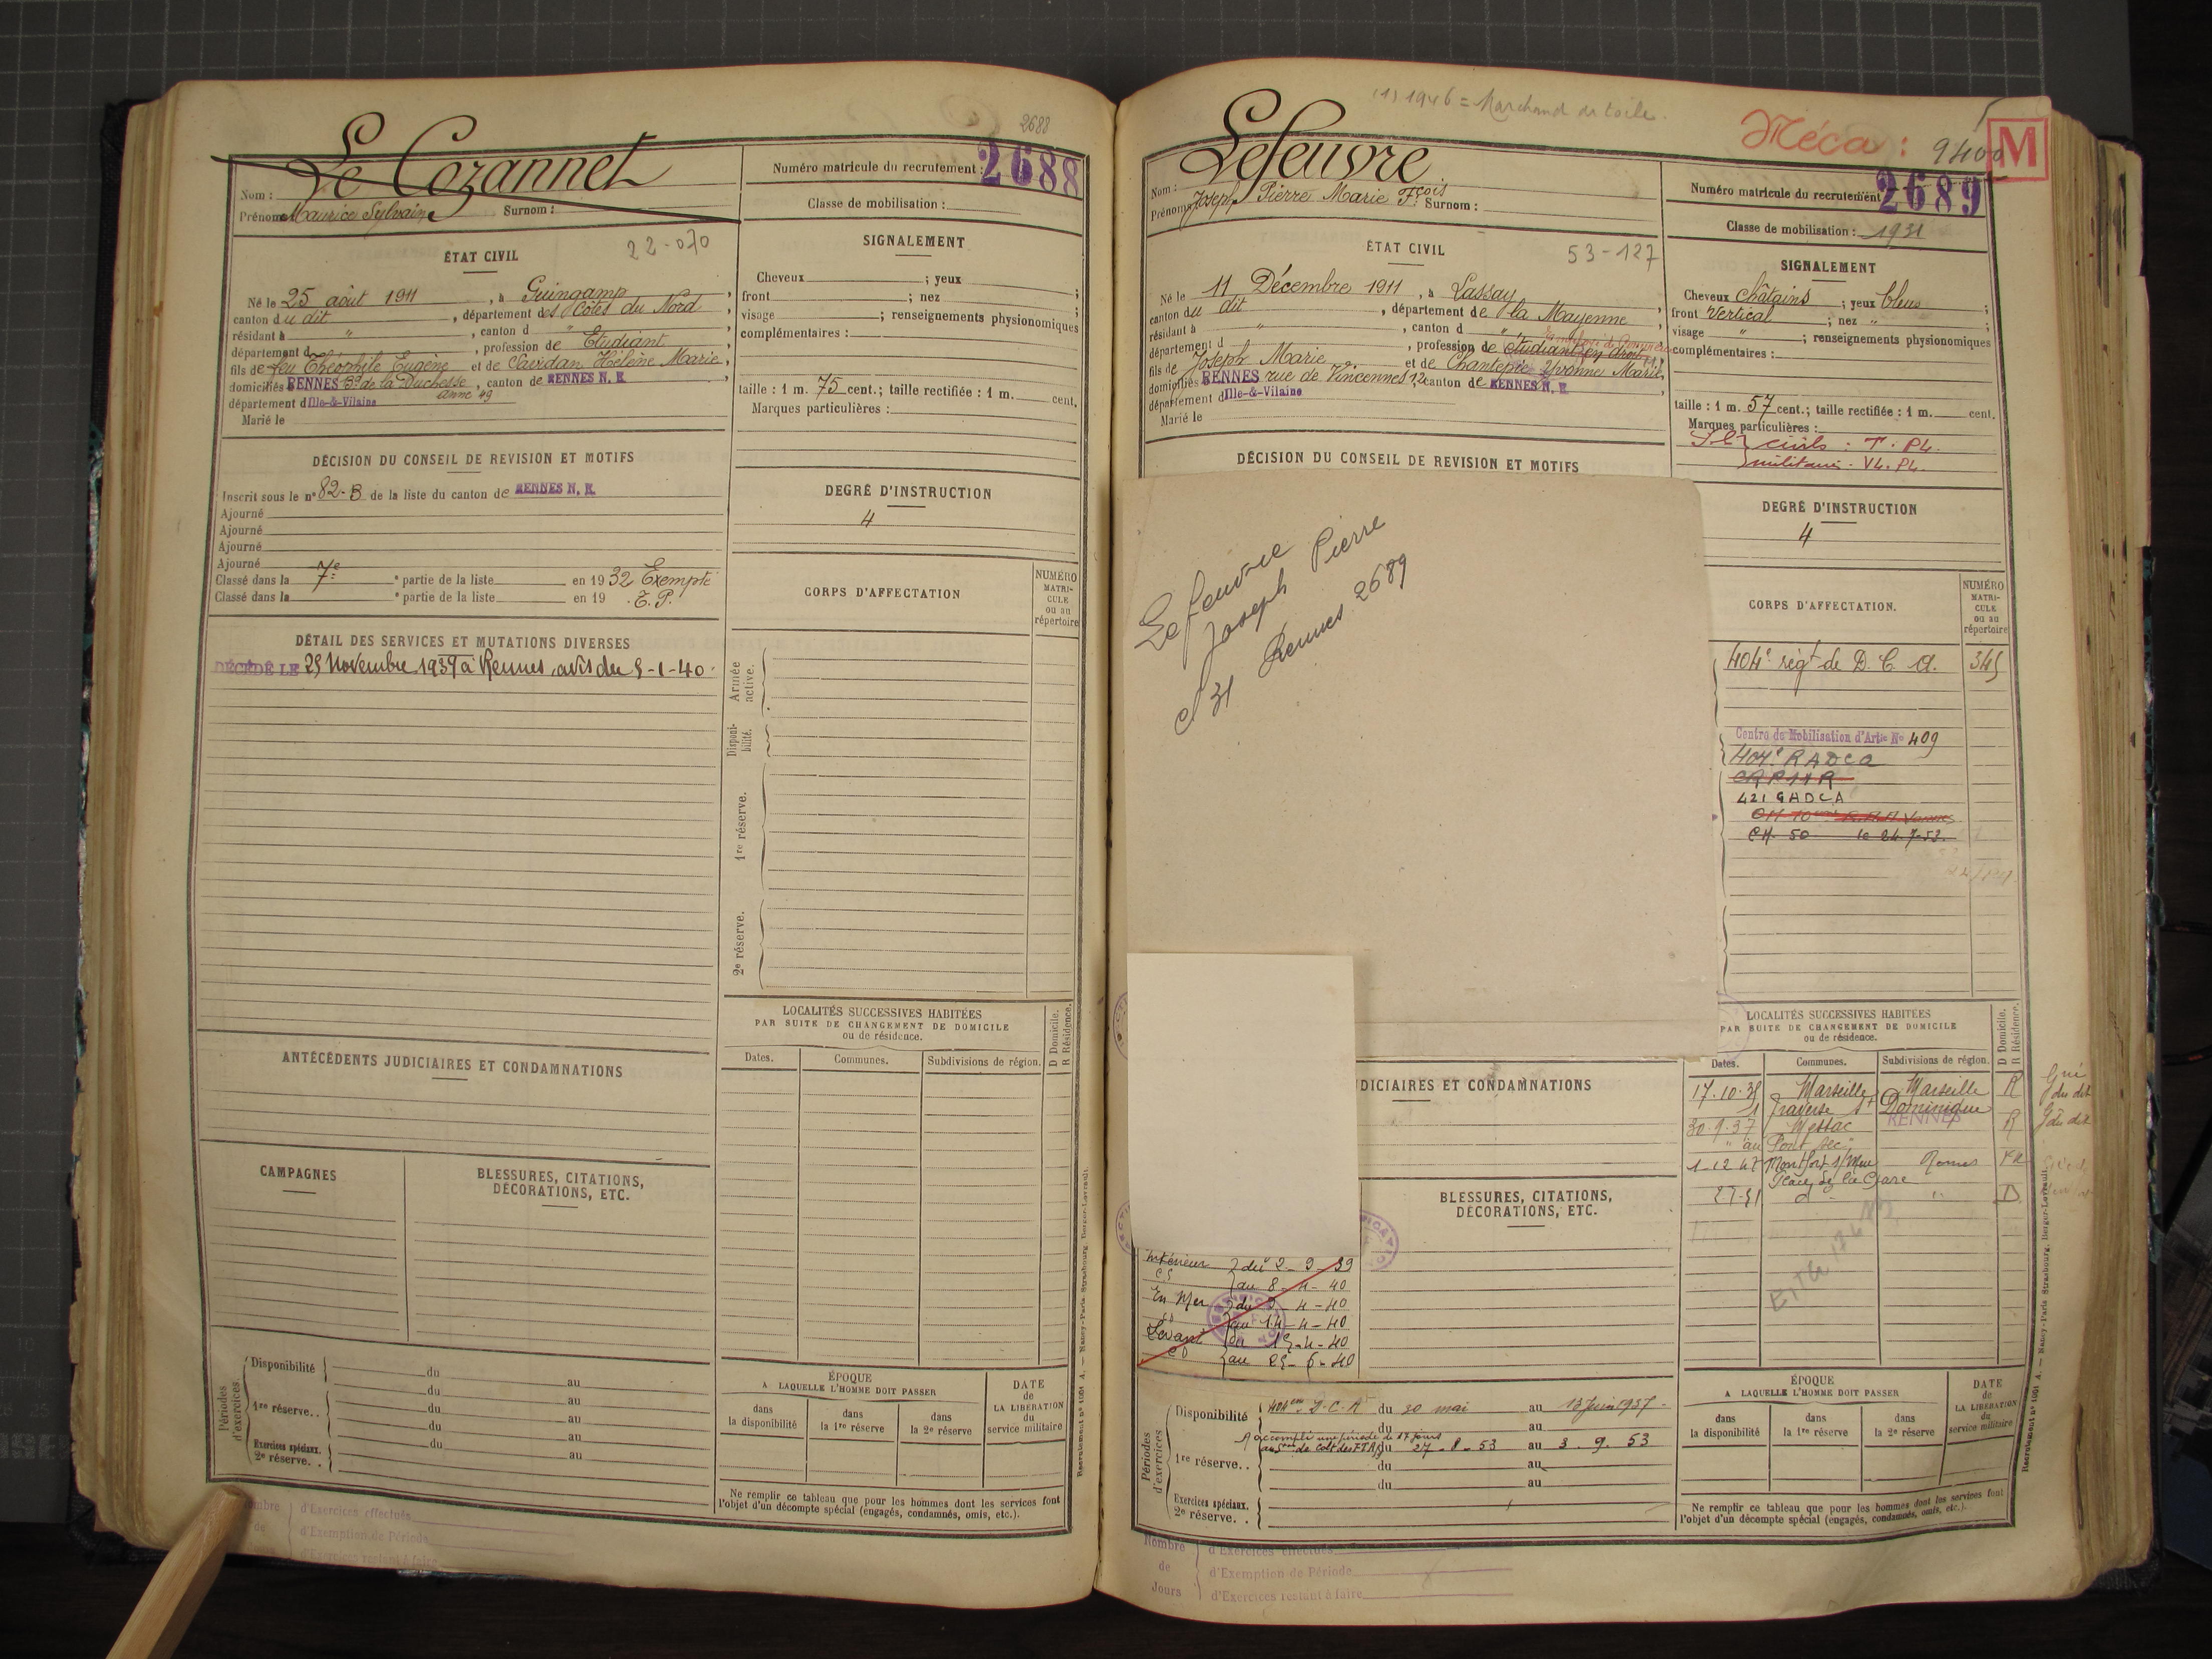 2688
Le Cozannet
Nom :
Prénoms Maurice Sylvain Surnom :
Numéro matricule du recrutement : 2688
Classe de mobilisation :
ÉTAT CIVIL
22-070
Né le 25 août 1911, à Guingamp,
canton du dit, département des Côtes du Nord,
résidant à ", canton d ",
département d, profession de Etudiant
fils de feu Théophile Eugène et de Hélène Marie,
domiciliés RENNES Bd de la Duchesse, canton de RENNES N. E.,
Anne 49
département d'Ille-&-Vilaine
Marié le
SIGNALEMENT
Cheveux ; yeux ;
front ; nez ;
visage ; renseignements physionomiques
complémentaires :
taille : 1 m. 75 cent.; taille rectifiée : 1 m. cent.
Marques particulières :
DÉCISION DU CONSEIL DE REVISION ET MOTIFS
Inscrit sous le n° 82-B de la liste du canton de RENNES N. E.
Ajourné
Ajourné
Ajourné
Ajourné
Classé dans la 7e partie de la liste en 1932 Exempté
Classé dans la partie de la liste en 19 E.P.
DEGRÉ D'INSTRUCTION
4
CORPS D'AFFECTATION
NUMÉRO MATRI-CULE ou au répertoire
Armée active.
Disponi-bilité.
1re réserve.
2e réserve.
DÉTAIL DES SERVICES ET MUTATIONS DIVERSES
DÉCÉDÉ LE 29 Novembre 1939 à Rennes, avis du 9-1-40.
ANTÉCÉDENTS JUDICIAIRES ET CONDAMNATIONS
CAMPAGNES
BLESSURES, CITATIONS,
DÉCORATIONS, ETC.
LOCALITÉS SUCCESSIVES HABITÉES
PAR SUITE DE CHANGEMENT DE DOMICILE
ou de résidence.
D Domicile.
R Résidence.
Dates. Communes. Subdivisions de région.
Périodes d'exercices.
Disponibilité du au
du au
1re réserve.. du au
du au
Exercices spéciaux. du au
2e réserve. .
ÉPOQUE
A LAQUELLE L'HOMME DOIT PASSER
dans la disponibilité
dans la 1re réserve
dans la 2e réserve
DATE de LA LIBÉRATION du service militaire
Ne remplir ce tableau que pour les hommes dont les services font
l'objet d'un décompte spécial (engagés, condamnés, omis, etc.).
Recrutement n° 1001 A. — Nancy-Paris-Strasbourg, Berger-Levrault.
Nombre de
d'Exercices effectués
d'Exemption de Période
d'Exercices restant à faire
(1) 1946 = Marchand de toile.
Méca : 9400
M
Lefeuvre
Nom :
Prénoms Joseph Pierre Marie Fçois Surnom :
Numéro matricule du recrutement 2689
Classe de mobilisation : 1931
ÉTAT CIVIL
53-127
Né le 11 Décembre 1911, à Lassay
canton du dit, département de la Mayenne,
résidant à ", canton d ",
département d, profession de étudiant en droit (1)
fils de Joseph Marie et de Chantepie Yvonne Marie,
domiciliés RENNES rue de Vincennes 12 canton de RENNES N. E.,
département d'Ille-&-Vilaine
Marié le
SIGNALEMENT
Cheveux châtains ; yeux bleus ;
front Vertical ; nez " ;
visage " ; renseignements physionomiques
complémentaires :
taille : 1 m. 57 cent.; taille rectifiée : 1 m. cent.
Marques particulières :
civils : T. PL.
militaire - VL. PL.
DÉCISION DU CONSEIL DE REVISION ET MOTIFS
DEGRÉ D'INSTRUCTION
4
Lefeuvre
Joseph Pierre
Cl 31 Rennes 2689
CORPS D'AFFECTATION.
NUMÉRO MATRI-CULE ou au répertoire
404e régt de D. C. A. 345
Centre de Mobilisation d'Artie No 409
404e RADCA
421 GADCA
CM 50 le 24.7.53.
DICIAIRES ET CONDAMNATIONS
BLESSURES, CITATIONS,
DÉCORATIONS, ETC.
Intérieur du 2-9-39
CS au 8-4-40
En Mer du 9-4-40
CD au 14-4-40
Levant du 15-4-40
CD au 25-6-40
LOCALITÉS SUCCESSIVES HABITÉES
PAR SUITE DE CHANGEMENT DE DOMICILE
ou de résidence.
D Domicile.
R Résidence.
Dates. Communes. Subdivisions de région.
17.10.35 Marseille Marseille R
Traverse St Dominique
30.9.37 Messac RENNES R
" au Port sec "
1-12 47 Montfort s/Meu Rennes
Place de la Gare
D
Périodes d'exercices
Disponibilité 404e D.C.A du 30 mai au 13 Juin 1937
du au
A accompli une période de 17 jours
du 27-8-53 au 3.9.53
1re réserve.. du au
du au
Exercices spéciaux.
2e réserve. .
ÉPOQUE
A LAQUELLE L'HOMME DOIT PASSER
dans la disponibilité
dans la 1re réserve
dans la 2e réserve
DATE de LA LIBÉRATION du service militaire
Ne remplir ce tableau que pour les hommes dont les services font
l'objet d'un décompte spécial (engagés, condamnés, omis, etc.).
Recrutement n° 1001 A. — Nancy-Paris Strasbourg, Berger-Levrault.
Nombre de Jours
d'Exercices effectués
d'Exemption de Période
d'Exercices restant à faire